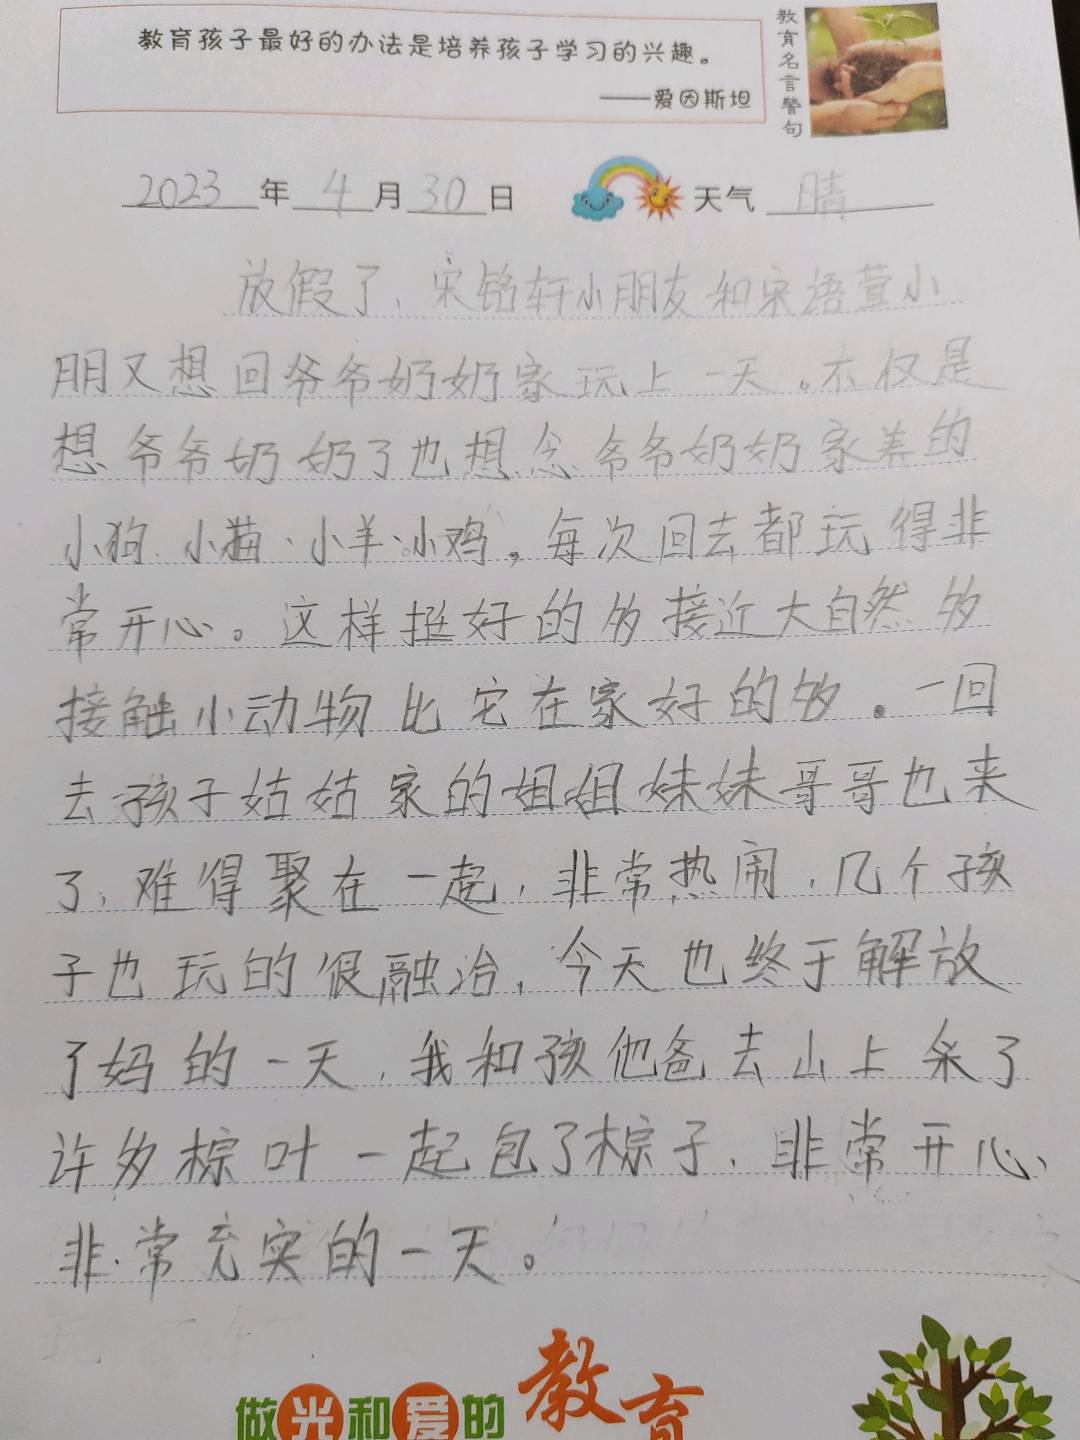 教育孩子最好的办法是培养孩子学习的兴趣。
——爱因斯坦
教育名言警句
2023年4月30日 天气 晴
放假了、宋铭轩小朋友和宋语萱小
朋又想回爷爷奶奶家玩上一天。不仅是
想爷爷奶奶了也想念爷爷奶奶家养的
小狗、小猫、小羊、小鸡。每次回去都玩得非
常开心。这样挺好的多接近大自然多
接触小动物比宅在家好的多。一回
去孩子姑姑家的姐姐妹妹哥哥也来
了,难得聚在一起,非常热闹,几个孩
子也玩的很融洽,今天也终于解放
了妈的一天,我和孩他爸去山上采了
许多棕叶一起包了棕子、非常开心、
非常充实的一天。
做光和爱的教育